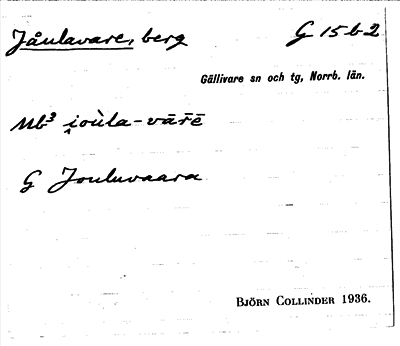 Jåulavare, berg G 15 b 2
Gällivare sn och tg, Norrb. län.
Mb³ i̯oùla-vār̄ē
G Jouluvaara
BJÖRN COLLINDER 1936.